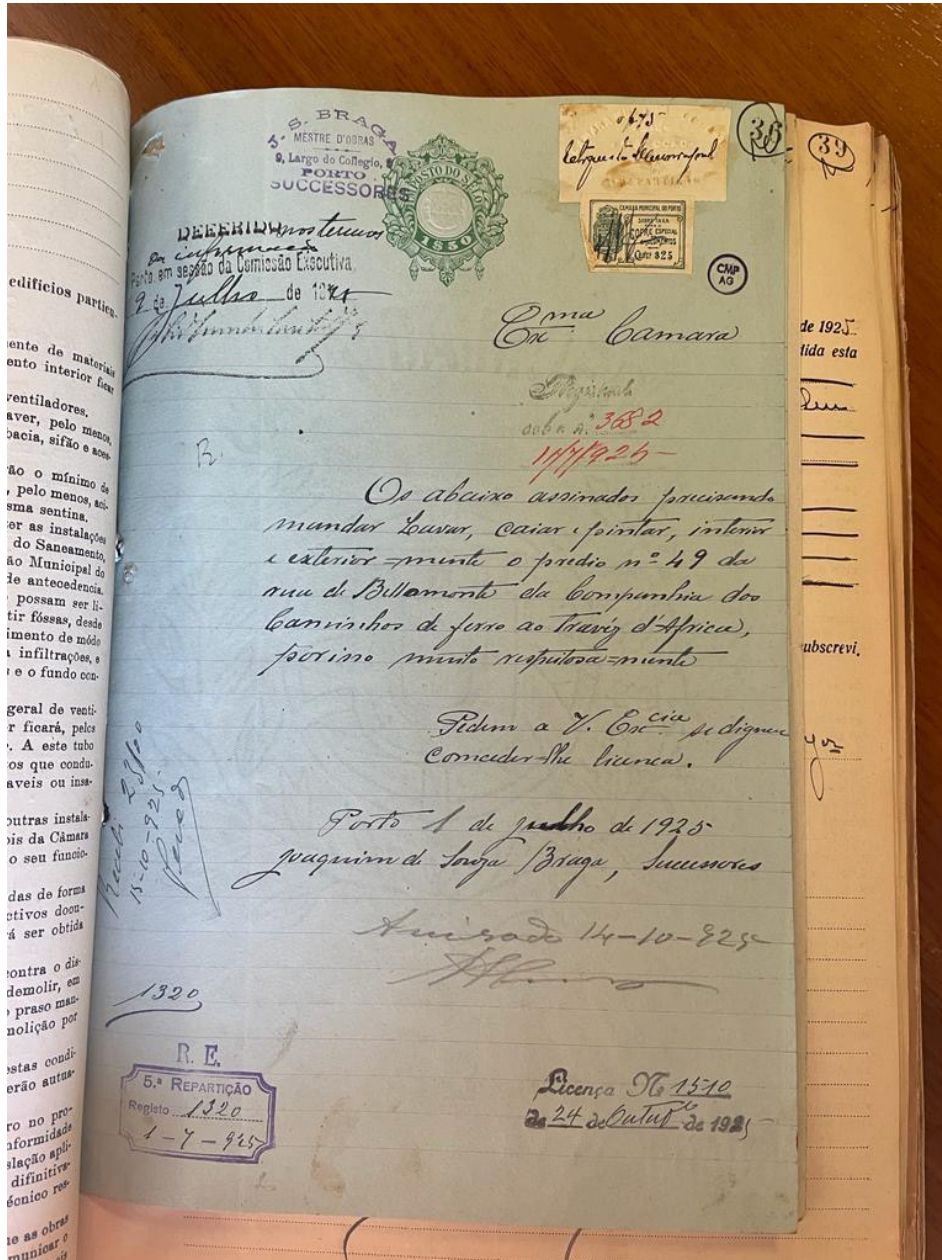 J. S. BRAGA
MESTRE D'OBRAS
9, Largo do Collegio, 9
PORTO
SUCCESSORES
IMPOSTO DO SELLO
1$50
0675
38
39
CAMARA MUNICIPAL DO PORTO
SOBRE TAXA
COFRE ESPECIAL
$25
CMP
AG
DEFERIDO nos termos
da informação
Porto em sessão da Comissão Executiva,
9 de Julho de 19
Exma Camara
Registada
sob o n.º 3682
11/7/925
R.
Os abaixo assinados precisando
mandar Lavar, caiar e pintar, interior
e exterior=mente o predio nº 49 da
rua de Bellomonte da Companhia dos
Caminhos de ferro ao Travéz d'Africa,
por isso muito respeitosa=mente
Pedem a V. Excia se digne
comceder-lhe licenca.
Porto 1 de julho de 1925
Joaquim de Souza Braga, Sucessores
Avisado 14-10-925
15-10-925
1320
R. E.
5.ª REPARTIÇÃO
Registo 1320
1-7-925
Licença Nº 1510
de 24 de Outubº de 1925
edifícios particu-
ente de materiais
ento interior ficar
ventiladores.
aver, pelo menos,
bacia, sifão e aces-
rão o mínimo de
, pelo menos, aci-
sma sentina.
er as instalações
do Saneamento,
ão Municipal do
de antecedencia.
possam ser li-
tir fóssas, desde
imento de módo
infiltrações, e
e o fundo con-
geral de venti-
r ficará, pelos
. A este tubo
os que condu-
aveis ou insa-
outras instala-
ois da Câmara
o seu funcio-
das de forma
ctivos docu-
á ser obtida
contra o dis-
demolir, em
praso man-
molição por
estas condi-
erão autua-
ro no pro-
nformidade
slação apli-
difinitiva-
écnico res-
ue as obras
municar o
de 1925
dida esta
subscrevi,